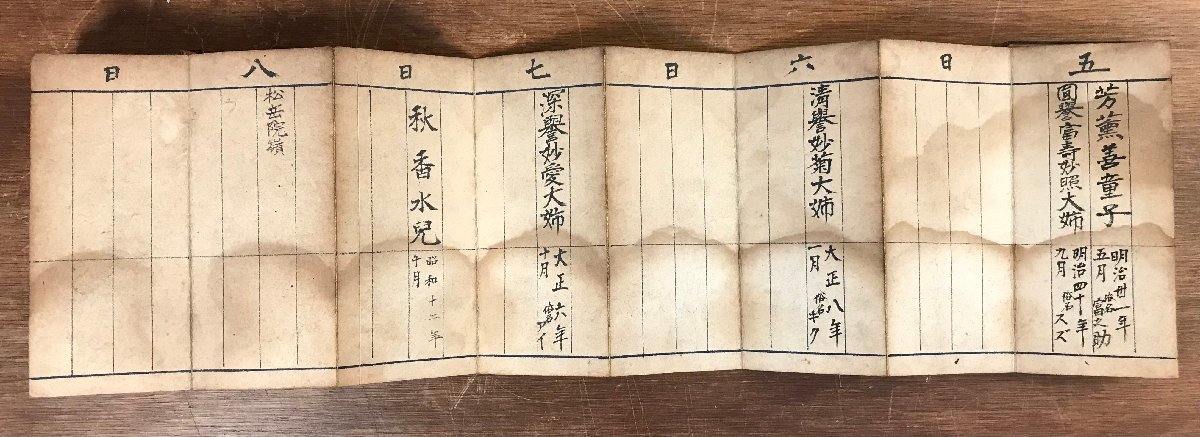 五
芳薫善童子
明治廿一年
五月 俗名 富之助
圓譽富壽妙照大姉
明治四十年
九月 俗名 スズ
日
六
清譽妙菊大姉
大正八年
一月 俗名 キク
日
七
深譽妙愛大姉
大正六年
十月 俗名 アイ
日
秋香水兒
昭和十二年
八
松岳院嶺
日